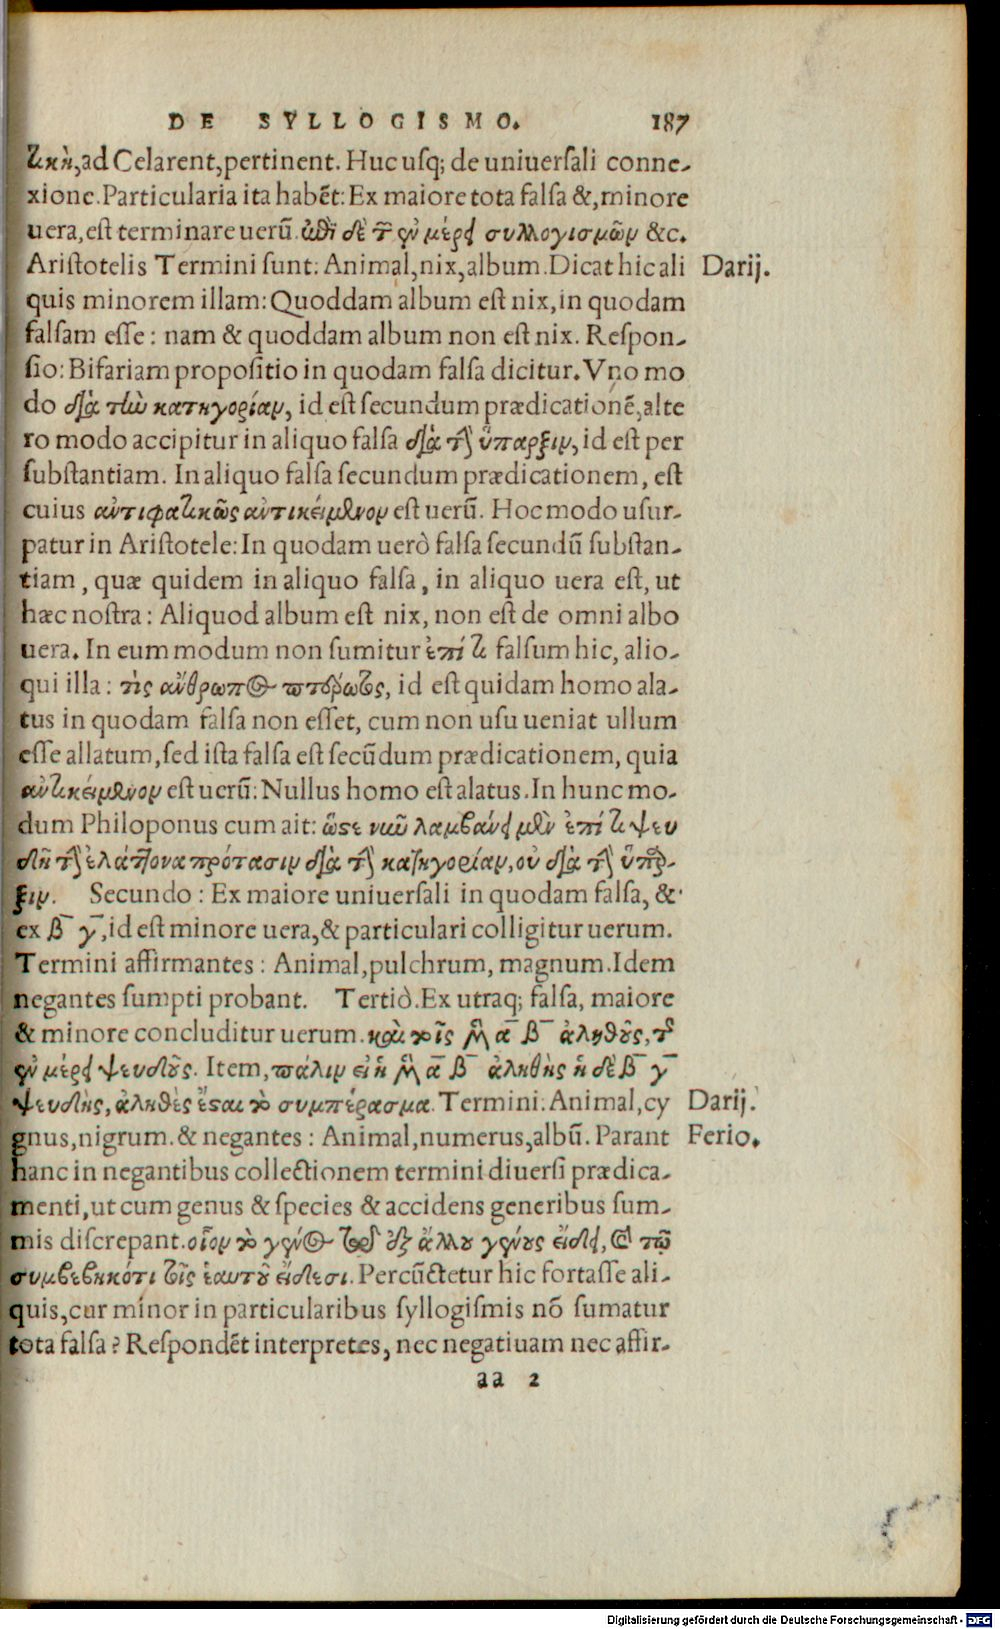 DE SYLLOGISMO. 187
τικὴ, ad Celarent, pertinent. Huc usq; de uniuersali conne-
xione. Particularia ita habẽt: Ex maiore tota falsa &, minore
uera, est terminare uerũ. ἐπὶ δὲ τῶν ἐν μέρει συλλογισμῶν &c.
Aristotelis Termini sunt: Animal, nix, album. Dicat hic ali Darij.
quis minorem illam: Quoddam album est nix, in quodam
falsam esse: nam & quoddam album non est nix. Respon-
sio: Bifariam propositio in quodam falsa dicitur. Vno mo
do διὰ τὴν κατηγορίαν, id est secundum prædicationẽ, alte
ro modo accipitur in aliquo falsa διὰ τὴν ὕπαρξιν, id est per
substantiam. In aliquo falsa secundum prædicationem, est
cuius ἀντιφατικῶς ἀντικείμενον est uerũ. Hoc modo usur-
patur in Aristotele: In quodam uerò falsa secundũ substan-
tiam, quæ quidem in aliquo falsa, in aliquo uera est, ut
hæc nostra: Aliquod album est nix, non est de omni albo
uera. In eum modum non sumitur ἐπί τι falsum hic, alio-
qui illa: τὶς ἄνθρωπος πτερωτός, id est quidam homo ala-
tus in quodam falsa non esset, cum non usu ueniat ullum
esse allatum, sed ista falsa est secũdum prædicationem, quia
ἀντικείμενον est uerũ: Nullus homo est alatus. In hunc mo-
dum Philoponus cum ait: ὥστε νῦν λαμβάνει μὲν ἐπί τι ψευ
δῆ τὴν ἐλάττονα πρότασιν διὰ τὴν κατηγορίαν, οὐ διὰ τὴν ὕπαρ-
ξιν. Secundo: Ex maiore uniuersali in quodam falsa, &
ex β γ, id est minore uera, & particulari colligitur uerum.
Termini affirmantes: Animal, pulchrum, magnum. Idem
negantes sumpti probant. Tertiò. Ex utraq; falsa, maiore
& minore concluditur uerum. καὶ τοῖς μὴ α β ἀληθοῦς, τῆς
ἐν μέρει ψευδοῦς. Item, πάλιν εἰ ἡ μὴ α β ἀληθὴς ἡ δὲ β γ
ψευδὴς, ἀληθὲς ἔσται τὸ συμπέρασμα. Termini: Animal, cy Darij.
gnus, nigrum. & negantes: Animal, numerus, albũ. Parant Ferio.
hanc in negantibus collectionem termini diuersi prædica-
menti, ut cum genus & species & accidens generibus sum-
mis discrepant. οἷον τὸ γένος τοῦ ἐξ ἄλλου γένους εἴδει, καὶ τῷ
συμβεβηκότι τοῖς ἑαυτοῦ εἴδεσι. Percũctetur hic fortasse ali-
quis, cur minor in particularibus syllogismis nõ sumatur
tota falsa? Respondẽt interpretes, nec negatiuam nec affir-
aa 2
Digitalisierung gefördert durch die Deutsche Forschungsgemeinschaft - DFG